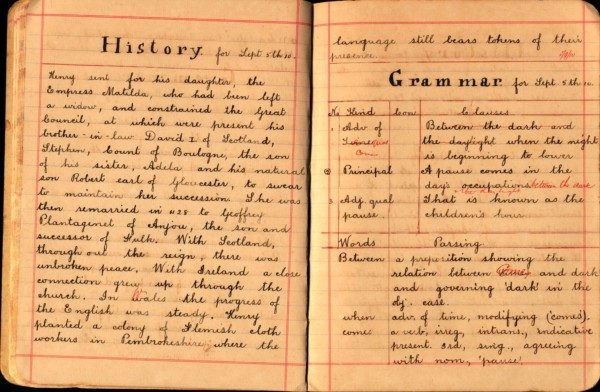 History for Sept 5th 10.
Henry sent for his daughter, the
Empress Matilda, who had been left
a widow, and constrained the Great
Council, at which were present his
brother-in-law David I. of Scotland,
Stephen, Count of Boulogne, the son
of his sister, Adela and his natural
son Robert earl of Gloucester, to swear
to maintain her succession. She was
then remarried in 1128 to Geoffrey
Plantagenet of Anjou, the son and
successor of Fulk. With Scotland,
through out the reign, there was
unbroken peace. With Ireland a close
connection grew up through the
church. In Wales the progress of
the English was steady. Henry
planted a colony of Flemish cloth
workers in Pembrokeshire, where the
language still bears tokens of their
presence.
Grammar for Sept 5th 10.
No Kind Con Clauses.
1 Adv of Between the dark and
Time qual the daylight when the night
is beginning to lower
2 Principal A pause comes in the
day's occupations between the dark
3 Adj. qual That is known as the
pause. children's hour.
Words Parsing.
Between a preposition showing the
relation between and dark
and governing 'dark' in the
obj. case.
when adv. of time, modifying ('comes).
comes a verb, irreg, intrans., indicative
present. 3rd, sing., agreeing
with nom, 'pause'.